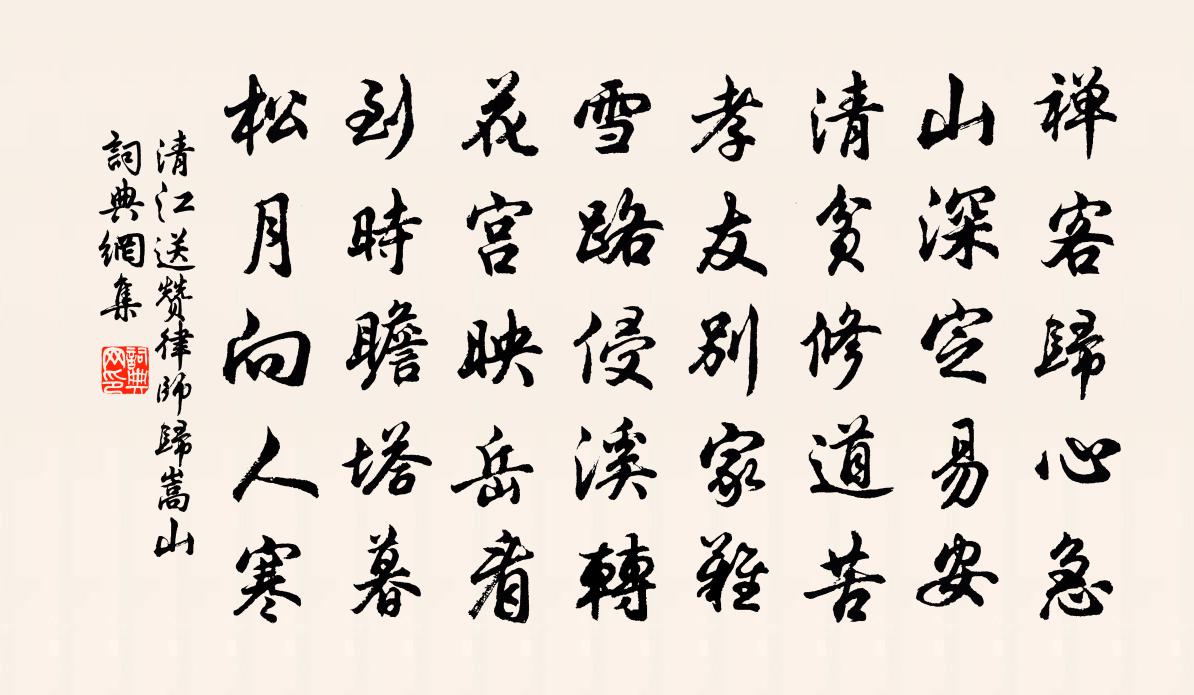 禅客歸心急
山深定易安
清貧修道苦
孝友別家難
雪路侵溪轉
花宮映岳看
到時瞻塔暮
松月向人寒
清江送贊律師歸嵩山
詞典網集
詞典
网印